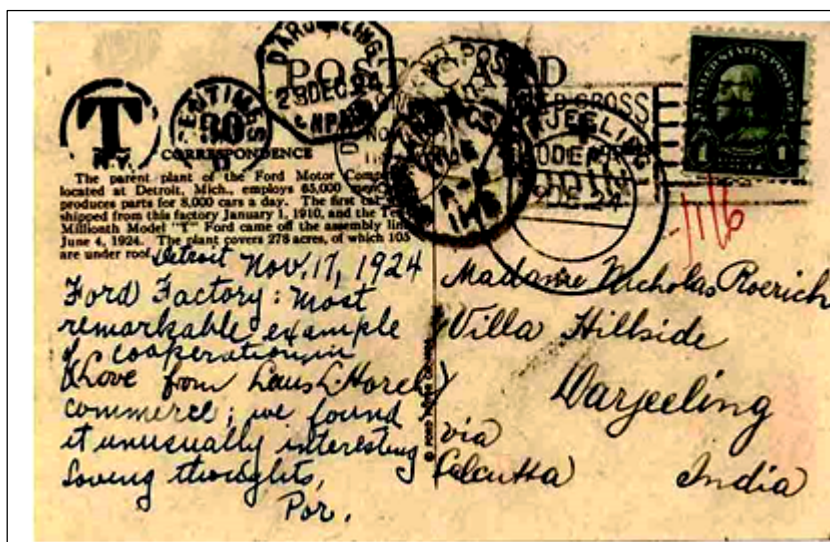 POST CARD
T
N.Y.
CENTIMES
30
DARJEELING
29 DEC. 24
CORRESPONDENCE
The parent plant of the Ford Motor Company,
located at Detroit, Mich., employs 65,000 men
produces parts for 8,000 cars a day. The first car
shipped from this factory January 1, 1910, and the Ten
Millionth Model "T" Ford came off the assembly line
June 4, 1924. The plant covers 278 acres, of which 105
are under roof.
Detroit Nov. 17, 1924
Ford Factory: Most
remarkable example
of cooperation in
(Love from Louis L. Horch)
commerce; we found
it unusually interesting
Loving thoughts,
Por.
UNITED STATES POSTAGE
1 1
RED CROSS
DARJEELING
24
1/1/6
Madame Nicholas Roerich
Villa Hillside
Darjeeling
via
Calcutta India